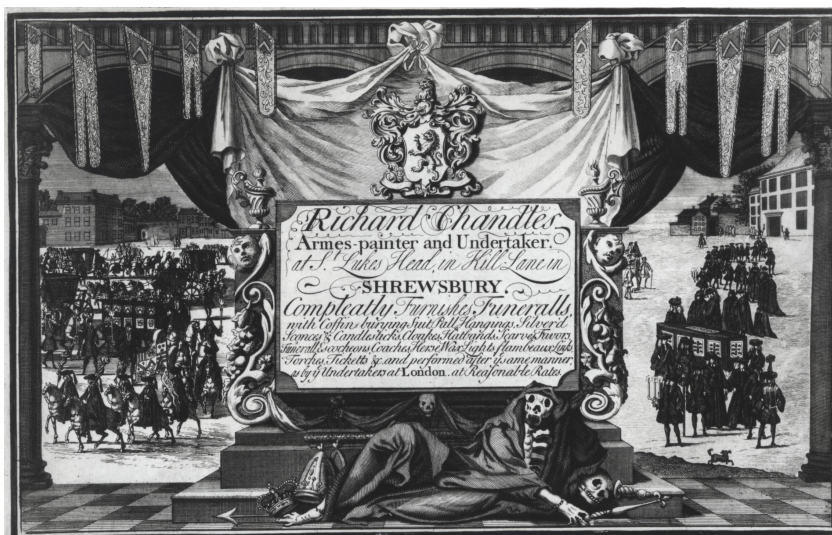 Richard Chandles
Armes-painter and Undertaker.
at St. Lukes Head, in Hill Lane in
SHREWSBURY.
Compleatly Furnishes Funeralls,
with Coffin, burying Suit, Pall, Hangings, Silver'd
Sconces & Candlesticks, Cloakes, Hatbands, Scarves, Favors,
Funerall Escocheons, Coaches, Herse, Wax Lights, flambeaux, Links
Torches, Ticketts &c. and performed after ye. same manner,
as by ye Undertakers at London, at Reasonable Rates.